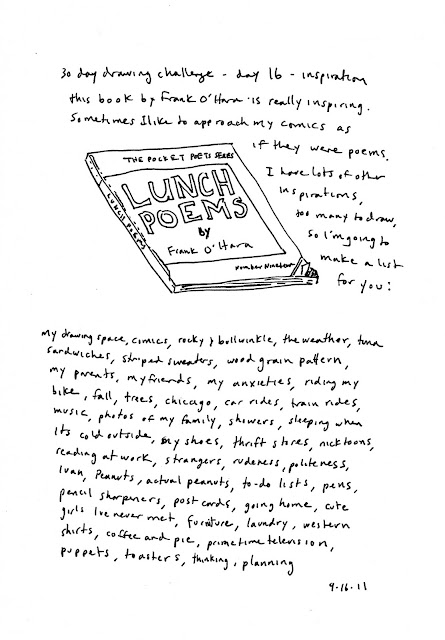 30 day drawing challenge - day 16 - inspiration
this book by Frank O'Hara is really inspiring.
Sometimes I like to approach my comics as
if they were poems.
I have lots of other
inspirations,
too many to draw,
so I'm going to
make a list
for you:
THE POCKET POETS SERIES
LUNCH
POEMS
by
Frank O'Hara
number nineteen
LUNCH POEMS
my drawing space, comics, rocky & bullwinkle, the weather, tuna
sandwiches, striped sweaters, wood grain pattern,
my parents, my friends, my anxieties, riding my
bike, fall, trees, chicago, car rides, train rides,
music, photos of my family, showers, sleeping when
its cold outside, my shoes, thrift stores, nicktoons,
reading at work, strangers, rudeness, politeness,
ivan, Peanuts, actual peanuts, to-do lists, pens,
pencil sharpeners, post cards, going home, cute
girls Ive never met, furniture, laundry, western
shirts, coffee and pie, primetime television,
puppets, toasters, thinking, planning
9.16.11